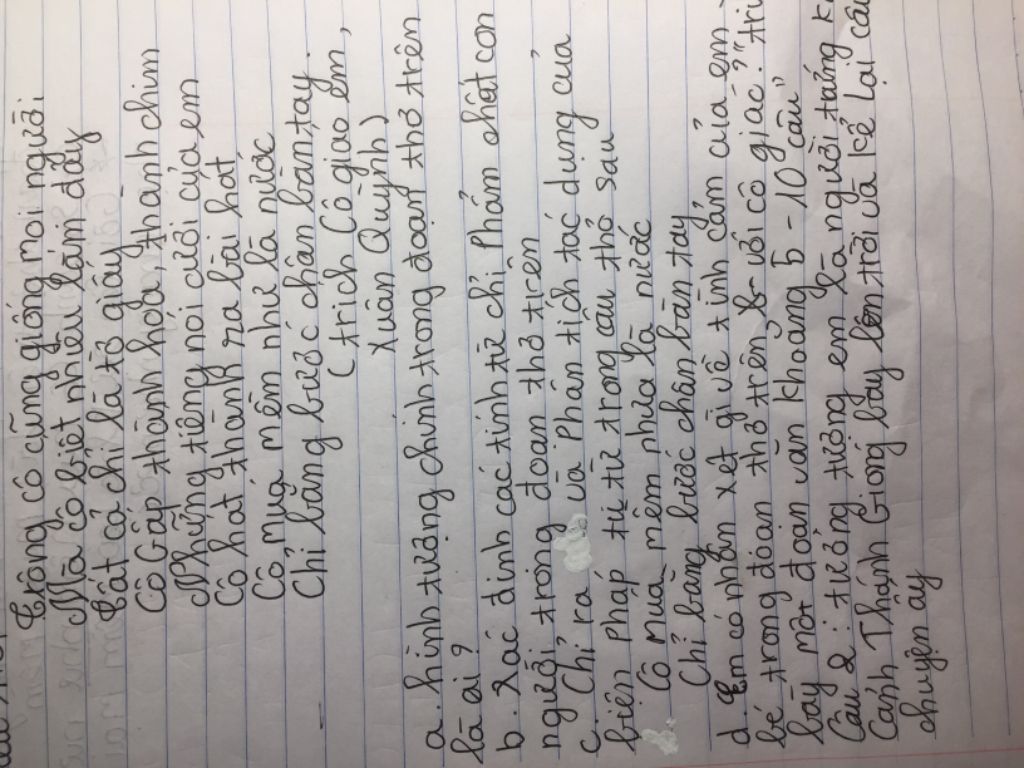 Trông cô cũng giống mọi người
Mà cô biết nhiều lắm đấy
Tất cả chỉ là tờ giấy
Cô Gấp thành hoa, thành chim
Những tiếng nói cười của em
Cô hát thành ra bài hát
Cô múa mềm như là nước
Chỉ bằng bước chân bàn tay.
(trích Cô giáo em,
Xuân Quỳnh)
a. hình tượng chính trong đoạn thơ trên
là ai?
b. Xác định các tính từ chỉ Phẩm chất con
người trong đoạn thơ trên
c. Chỉ ra và Phân tích tác dụng của
biện Pháp từ từ trong câu thơ sau
Cô múa mềm như là nước
Chỉ bằng bước chân bàn tay
d. Em có nhận xét gì về tình cảm của em
bé trong đoạn thơ trên với cô giáo?
bày một đoạn văn khoảng 5 - 10 câu"
Câu 2: tưởng tượng em là người
Cánh Thánh Gióng bay lên trời và kể lại câu
chuyện ấy